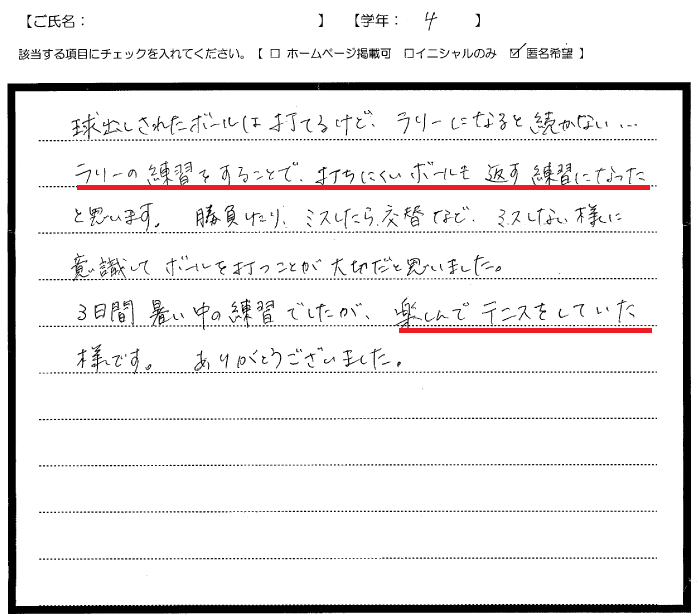 【ご氏名： 】 【学年： 4 】
該当する項目にチェックを入れてください。【 □ ホームページ掲載可 □イニシャルのみ ☑ 匿名希望 】
球出しされたボールは打てるけど、ラリーになると続かない…
ラリーの練習をすることで、打ちにくいボールも返す練習になった
と思います。 勝負したり、ミスしたら交替など、ミスしない様に
意識してボールを打つことが大切だと思いました。
3日間暑い中の練習でしたが、楽しんでテニスをしていた
様です。 ありがとうございました。